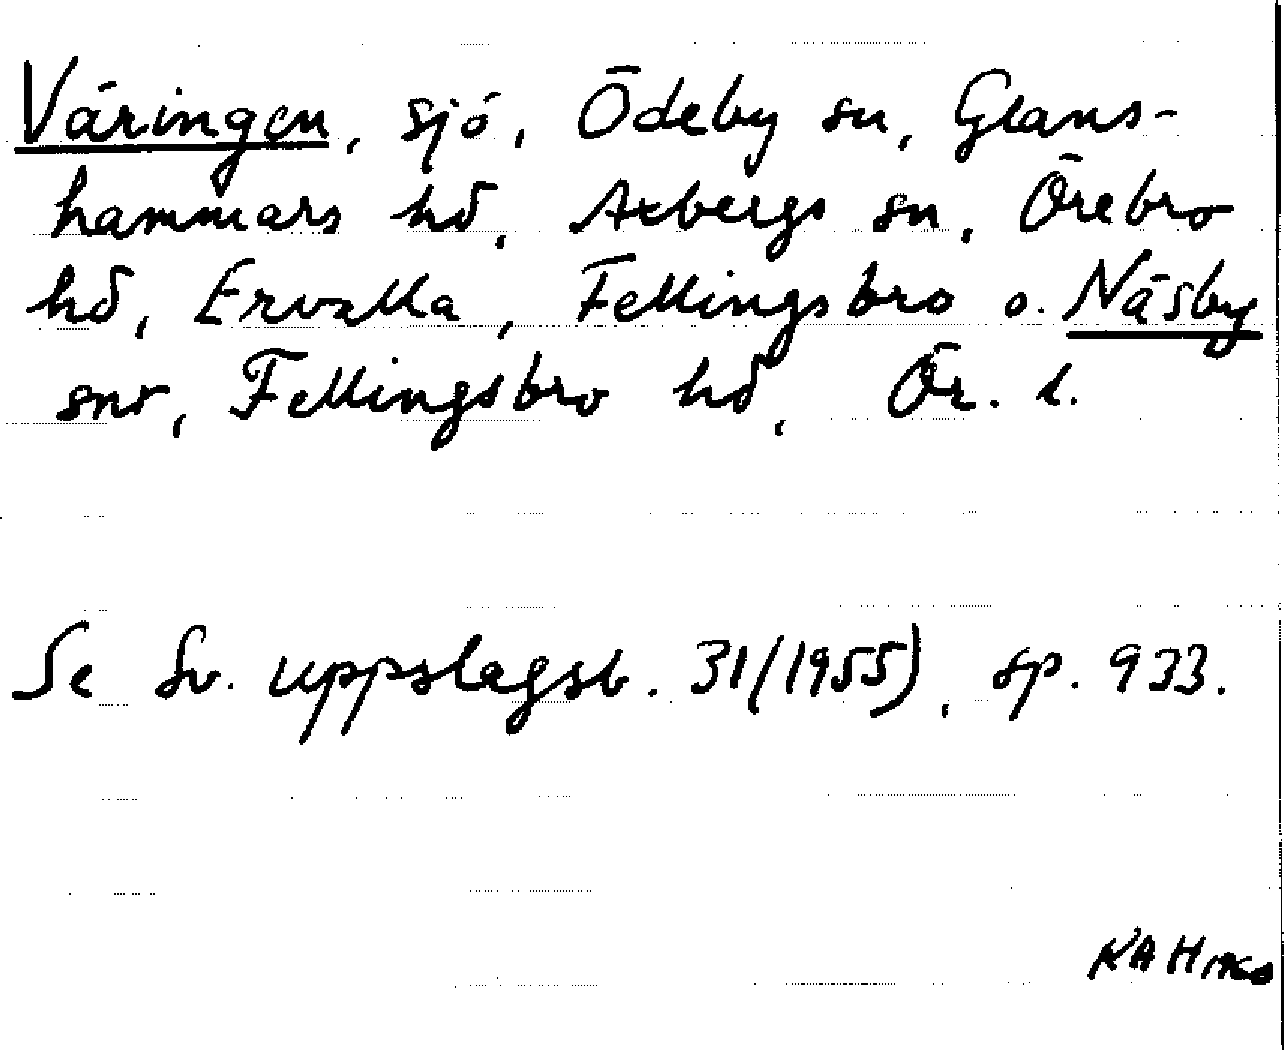 Väringen, sjö, Ödeby sn, Glans-
hammars hd, Axbergs sn, Örebro
hd, Ervalla, Fellingsbro o. Näsby
snr, Fellingsbro hd, Ör. l.
Se Sv. uppslagsb. 31/(1955), sp. 933.
KAH 1960